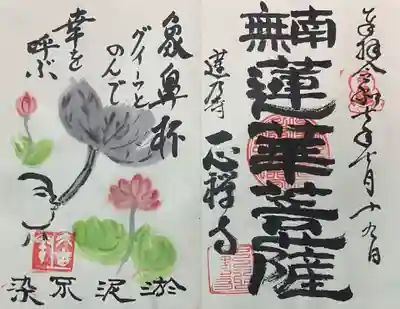 奉拝 令和七年七月十九日
南無蓮華菩薩
蓮乃寺
象鼻杯
グイーッと
のんで
幸を
呼ぶ
淤泥不染